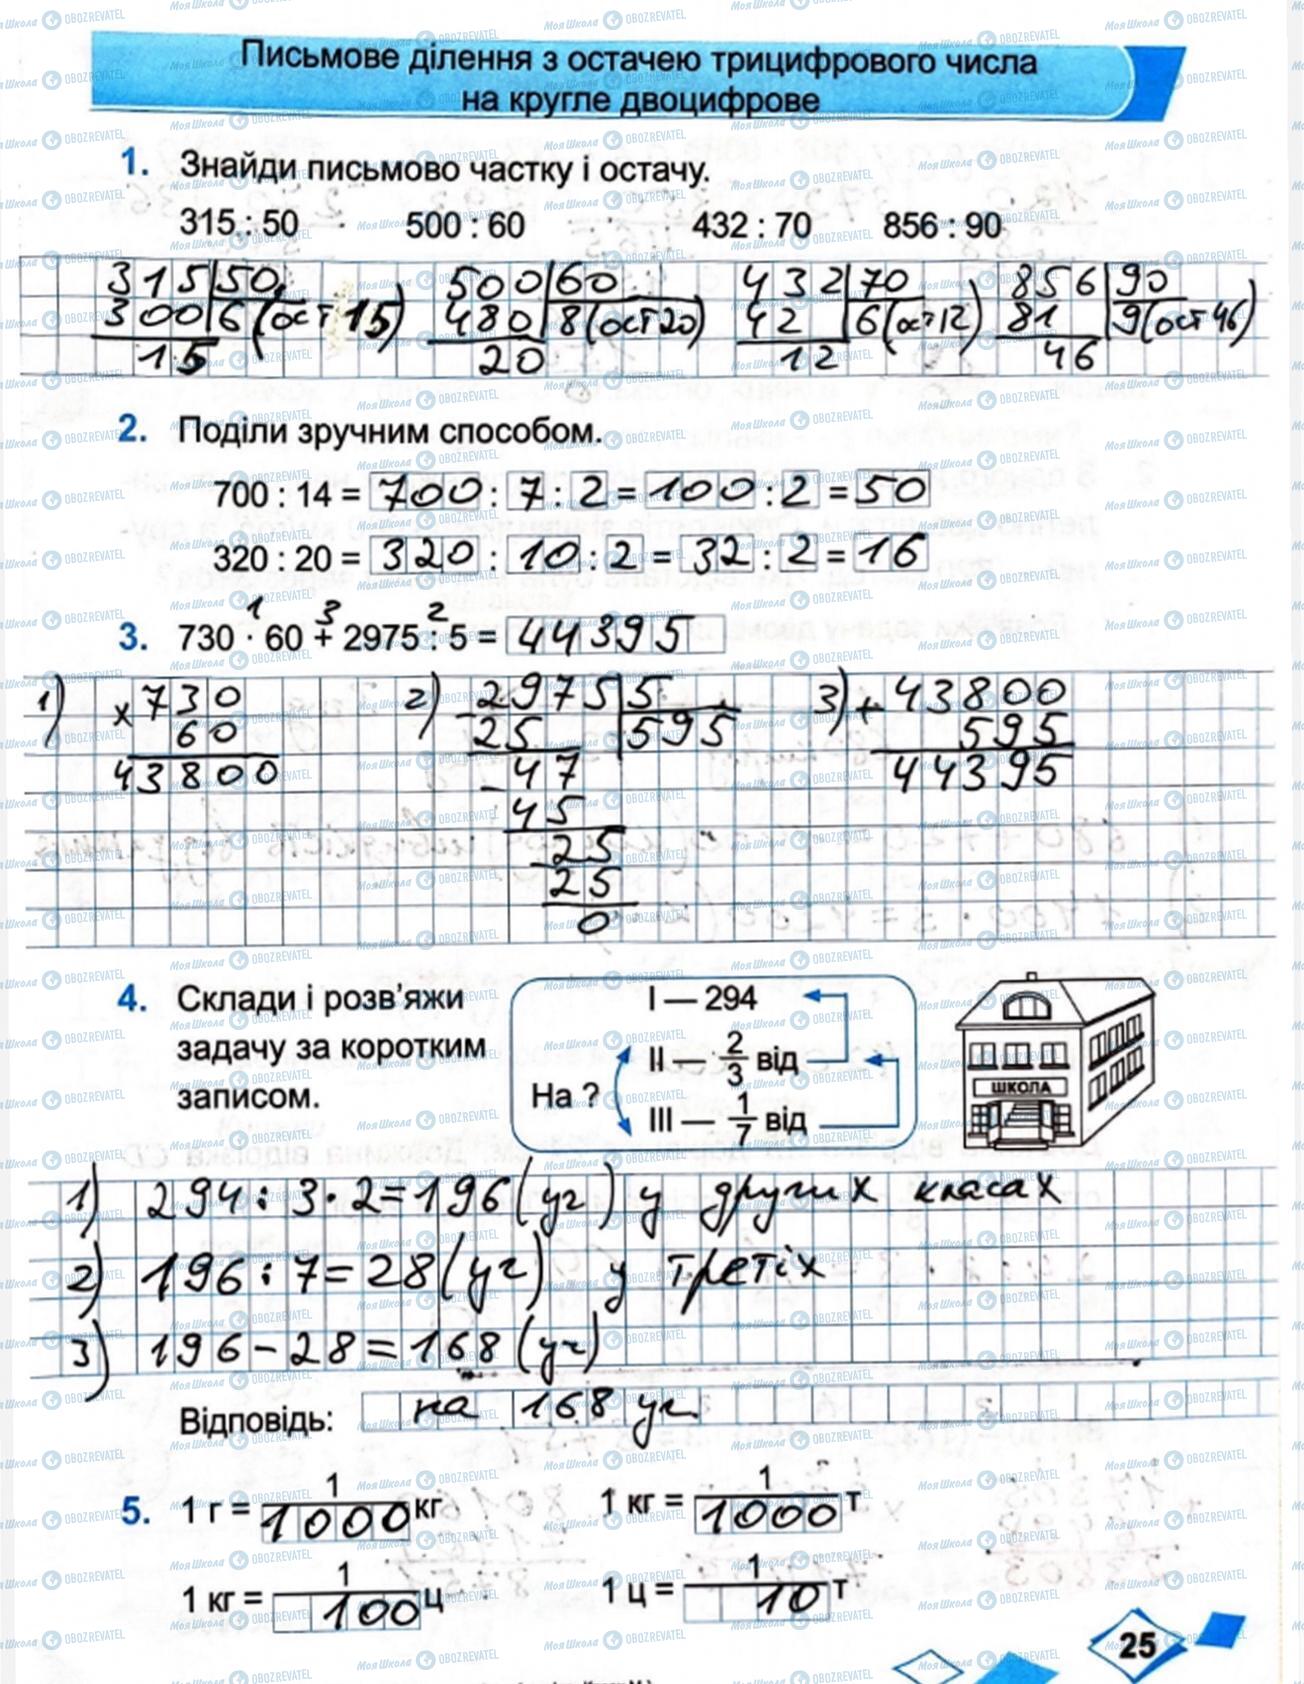 Письмове ділення з остачею трицифрового числа
на кругле двоцифрове
1. Знайди письмово частку і остачу.
315 : 50 500 : 60 432 : 70 856 : 90
315 50 500 60 432 70 856 90
300 6 (ост 15) 480 8 (ост 20) 42 6 (ост 12) 81 9 (ост 46)
15 20 12 46
2. Поділи зручним способом.
700 : 14 = 700 : 7 : 2 = 100 : 2 = 50
320 : 20 = 320 : 10 : 2 = 32 : 2 = 16
1 3 2
3. 730 · 60 + 2975 : 5 = 44395
1) × 730 2) 2975 5 3) + 43800
60 25 595 595
43800 - 47 44395
45
- 25
25
0
4. Склади і розв'яжи
задачу за коротким
записом.
І — 294
ІІ — 2/3 від
На ?
ІІІ — 1/7 від
ШКОЛА
1) 294 : 3 · 2 = 196 (уч) у других класах
2) 196 : 7 = 28 (уч) у третіх
3) 196 – 28 = 168 (уч)
Відповідь: на 168 уч.
5. 1 г = 1/1000 кг 1 кг = 1/1000 т
1 кг = 1/100 ц 1 ц = 1/10 т
25
МояШкола OBOZREVATEL